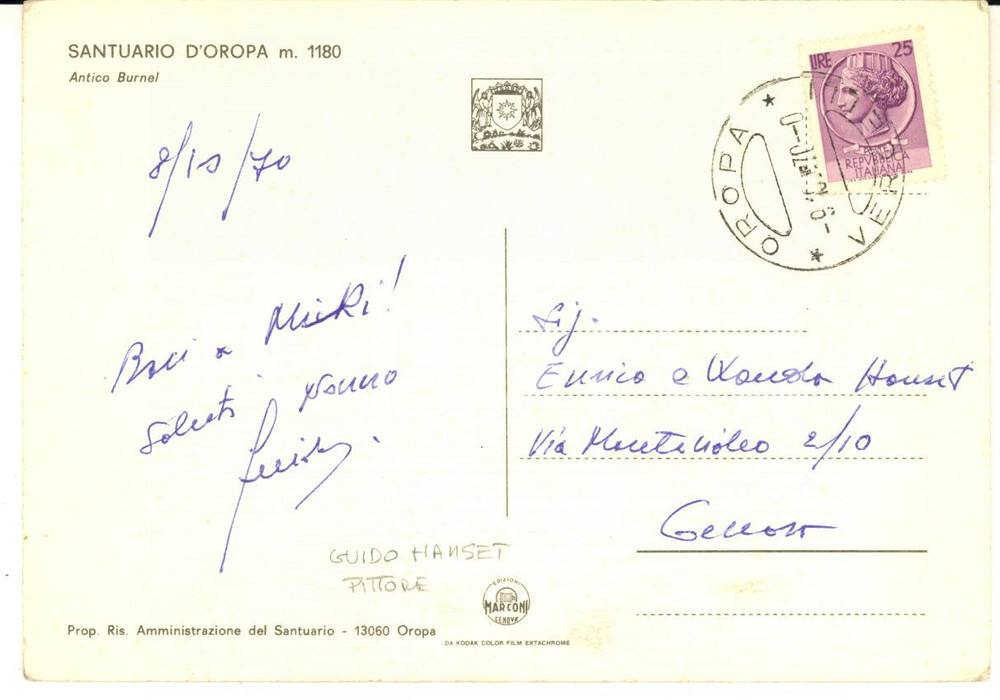 SANTUARIO D'OROPA m. 1180
Antico Burnel
LIRE 25
REPVBBLICA
ITALIANA
OROPA
8/10/70
Baci a Micki!
Saluti Nonno
Guido
Sig.
Enrico e Wanda Hanset
Via Montevideo 2/10
Genova
GUIDO HANSET
PITTORE
EDIZIONI
MARCONI
GENOVA
Prop. Ris. Amministrazione del Santuario - 13060 Oropa
DA KODAK COLOR FILM EKTACHROME